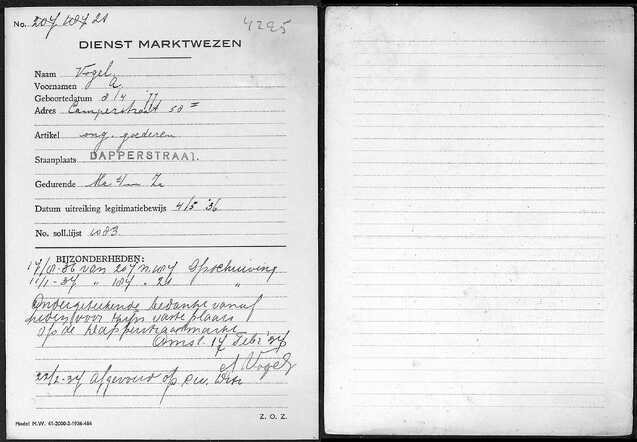 No. 207 W 7 21
4295
DIENST MARKTWEZEN
Naam Vogel
Voornamen A
Geboortedatum 8/4 '77
Adres Camperstraat 50 II
Artikel ong. goederen
Staanplaats DAPPERSTRAAT.
Gedurende Ma t/m Za
Datum uitreiking legitimatiebewijs 4/5 '36
No. soll.lijst 1083
BIJZONDERHEDEN:
van Opschuiving
11/1-37 " " 21 "
Ondergetekende bedankt vanaf
heden voor zijn vaste plaats
op de Dapperstraatmarkt
Amst. 17 Febr '37
A Vogel
22/2-37 afgevoerd op
Model M.W. 41-2000-3-1936-484
Z. O. Z.